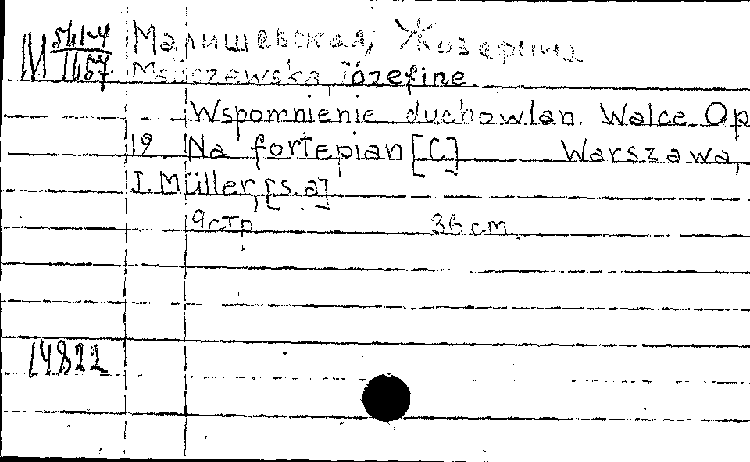 М 511-4
1157
Малишевская, Жозефина
Józefine.
Wspomnienie duchowlan. Walce Op
19 Na fortepian [C] Warszawa,
I. Müller, [s.a]
9 стр 36 cm.
14822